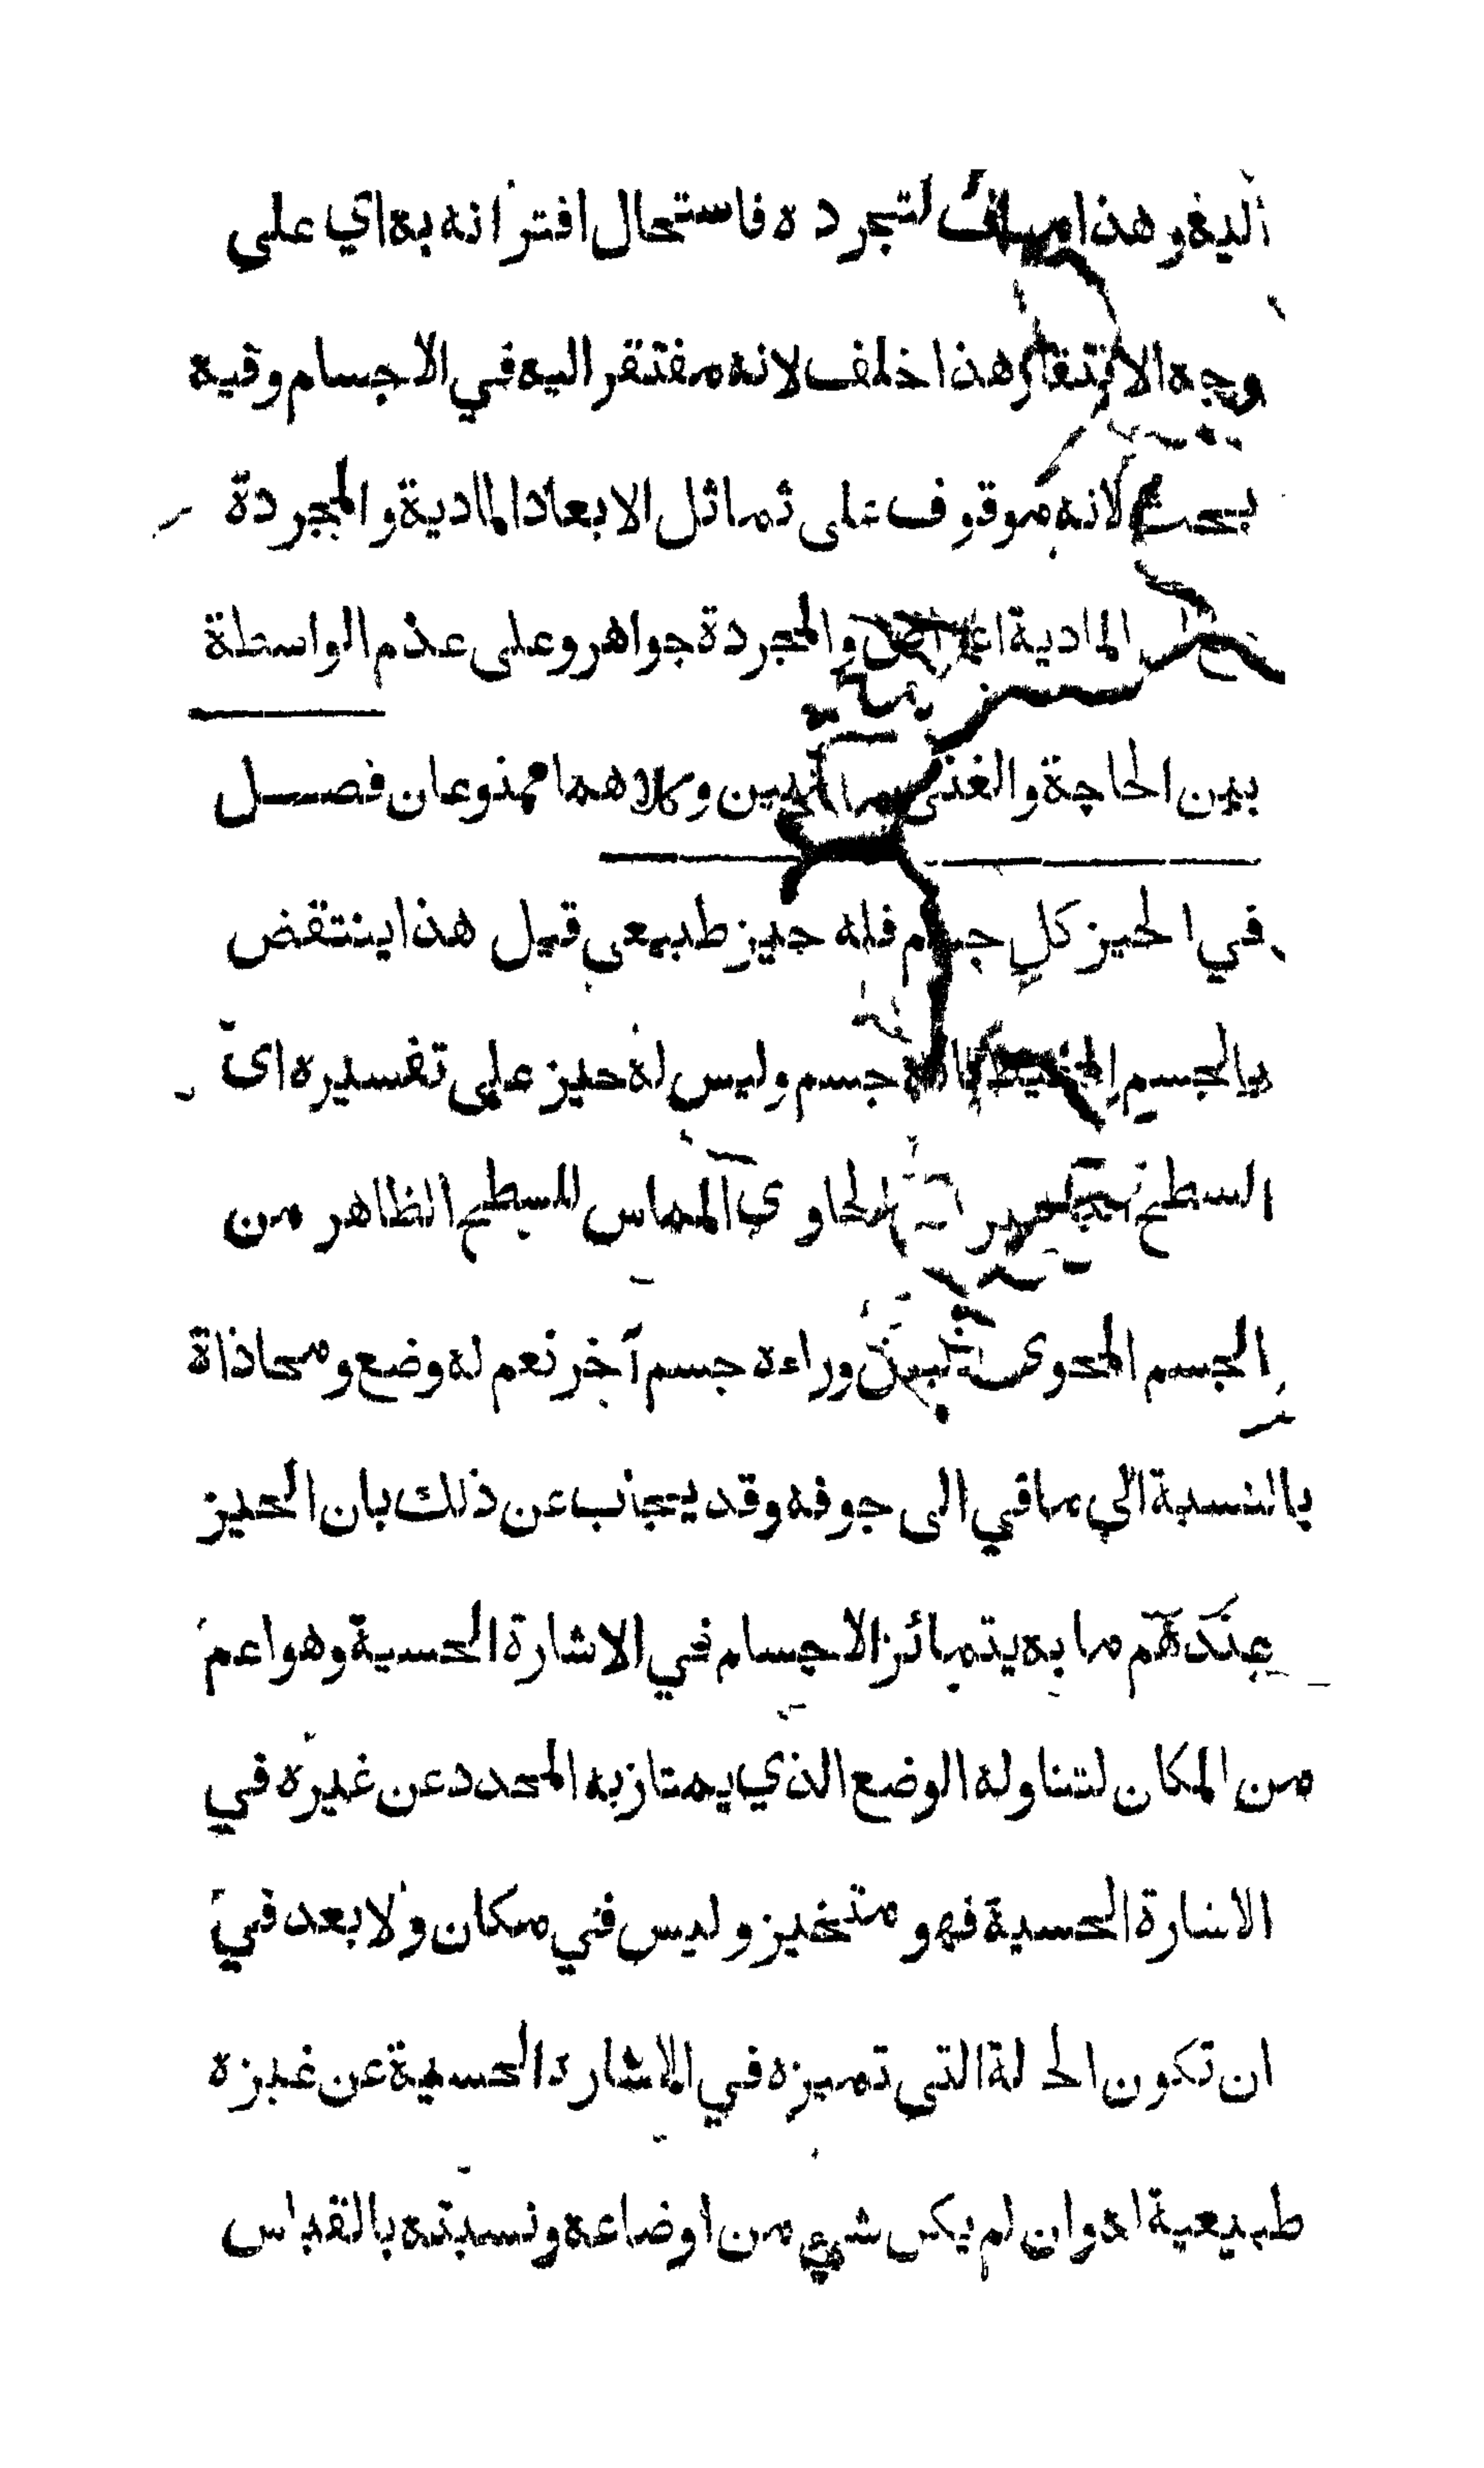 اليه وهذا مناف لتجرده فاستحال افترانه به اي على
وجه الافتقار هذا خلف لانه مفتقر اليه في الاجسام وفيه
بحث لانه موقوف على تماثل الابعاد المادية والمجردة
المادية اعراض والمجردة جواهر وعلى عدم الواسطة
بين الحاجة والغنى وكلاهما ممنوعان فصل
في الحيز كل جسم فله حيز طبيعي قيل هذا ينتقض
بالجسم المحيط جسم وليس له حيز على تفسيره اى
السطح الحاوي المماس للسطح الظاهر من
الجسم المحوى وراءه جسم آخر نعم له وضع ومحاذاة
بالنسبة الى ما في الى جوفه وقد يجاب عن ذلك بان الحيز
عندهم ما به يتمائز الاجسام في الاشارة الحسية وهو اعم
من المكان لتناوله الوضع الذي يمتاز به المحدد عن غيره في
الاشارة الحسية فهو متحيز وليس في مكان ولا بعد في
ان تكون الحالة التي تميزه في الاشارة الحسية عن غيره
طبيعية له وان لم يكن شيء من اوضاعه ونسبته بالقياس